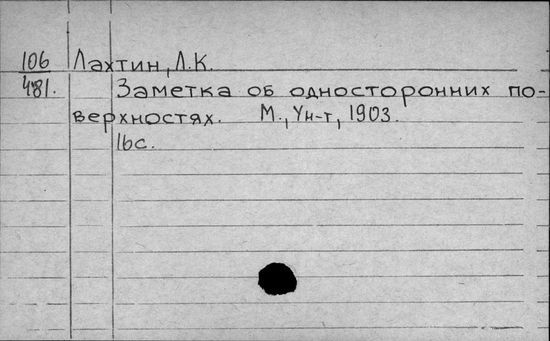 106 Лахтин, Л.К.
481. Заметка об односторонних по-
верхностях. М., Ун-т, 1903.
16с.